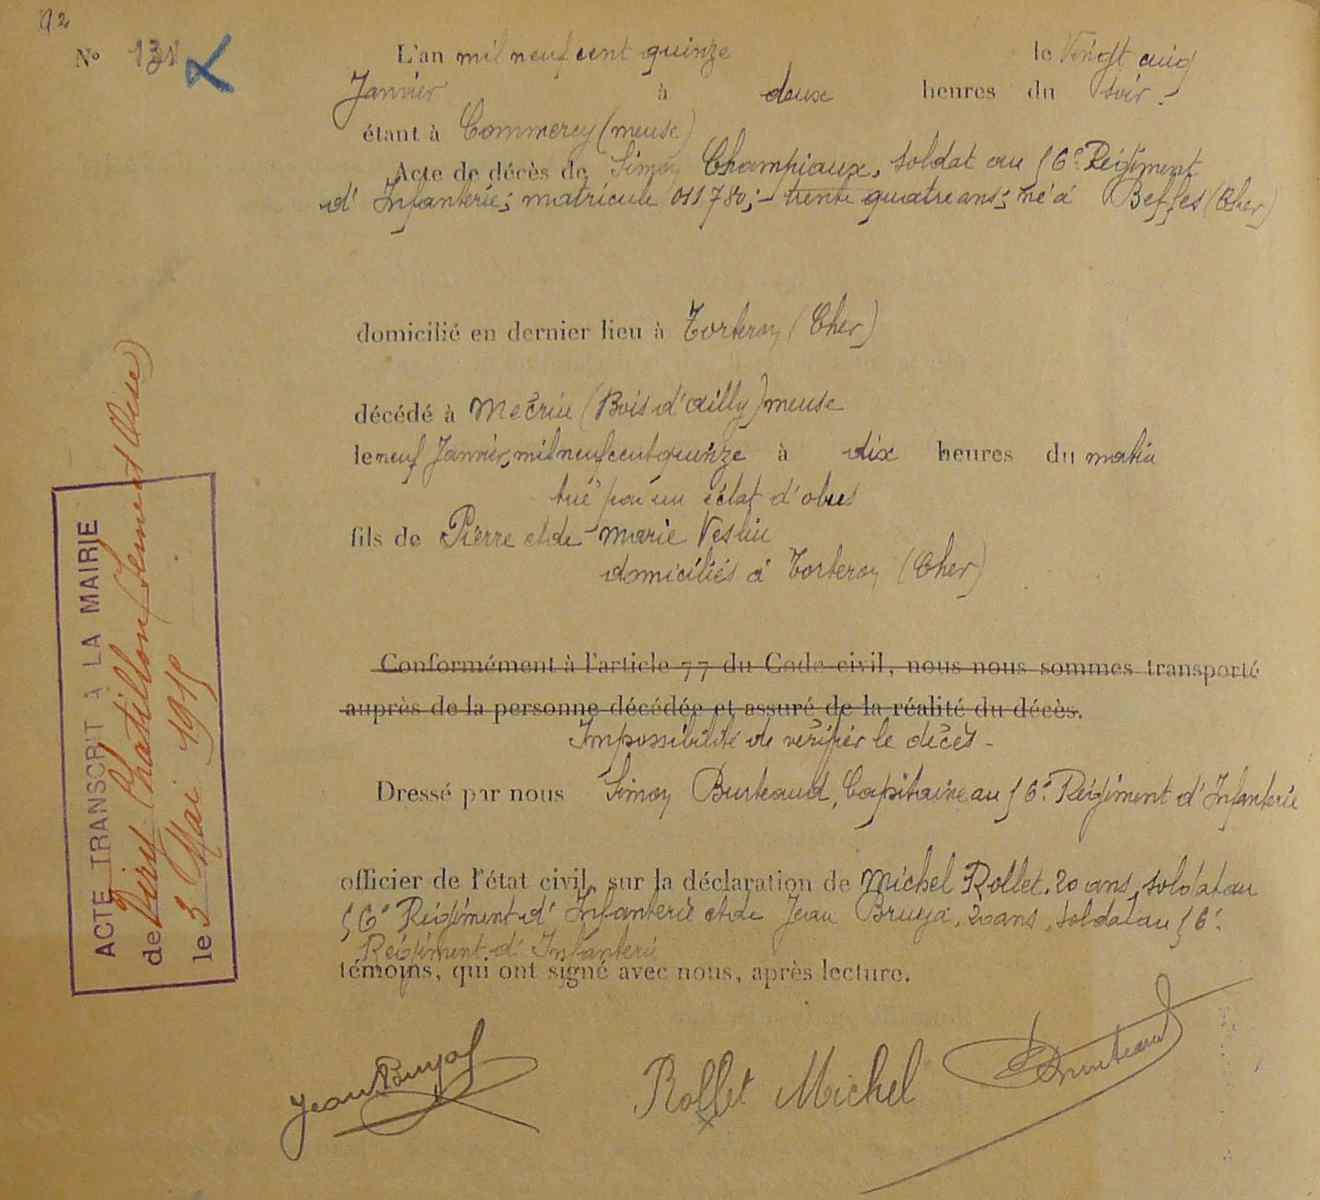 92
N° 131
L'an mil neuf cent quinze le Vingt cinq
Janvier à deux heures du soir.-
étant à Commercy (meuse)
Acte de décès de Simon Champiaux, soldat au 56e Régiment
d' Infanterie; matricule 011780;- trente quatre ans; né à Beffes (Cher)
domicilié en dernier lieu à Torteron (Cher)
décédé à Mécrin (Bois d'ailly) meuse
le neuf Janvier, mil neuf cent quinze à dix heures du matin
tué par un éclat d'obus
fils de Pierre et de marie Veslin
domiciliés à Torteron (Cher)
Conformément à l'article 77 du Code civil, nous nous sommes transporté
auprès de la personne décédée et assuré de la réalité du décès.
Impossibilité de vérifier le décès -
Dressé par nous Simon Burteaud, Capitaine au 56e Régiment d'Infanterie
officier de l'état civil, sur la déclaration de Michel Rollet, 20 ans, soldat au
56e Régiment d' Infanterie et de Jean 20 ans, soldat au 56e
Régiment d' Infanterie
témoins, qui ont signé avec nous, après lecture.
Jean
Rollet Michel
ACTE TRANSCRIT A LA MAIRIE
de Chatillon
le 3 Mai 1915